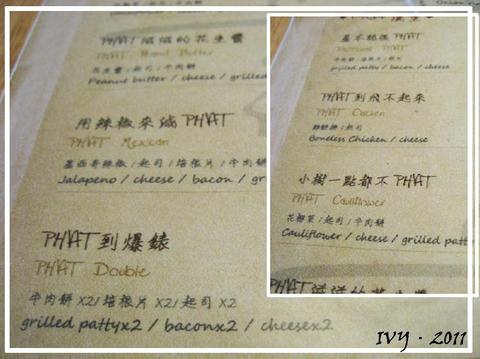 PHAT 滋滋的花生醬
PHAT Peanut Butter
花生醬 / 起司 / 牛肉餅
Peanut butter / cheese / grilled
用辣椒來減 PHAT
PHAT Mexican
墨西哥辣椒 / 起司 / 培根片 / 牛肉餅
Jalapeno / cheese / bacon / gr
PHAT到爆錶
PHAT Double
牛肉餅 X2/ 培根片 X2/ 起司 X2
grilled pattyx2 / baconx2 / cheesex2
PHAT
PHAT
grilled patty / bacon / cheese
PHAT到飛不起來
PHAT Chicken
起司
Boneless Chicken / cheese
小樹一點都不PHAT
PHAT Cauliflower
花椰菜 / 起司 / 牛肉餅
Cauliflower / cheese / grilled patt
PHAT滋滋的花生醬
IVY · 2011